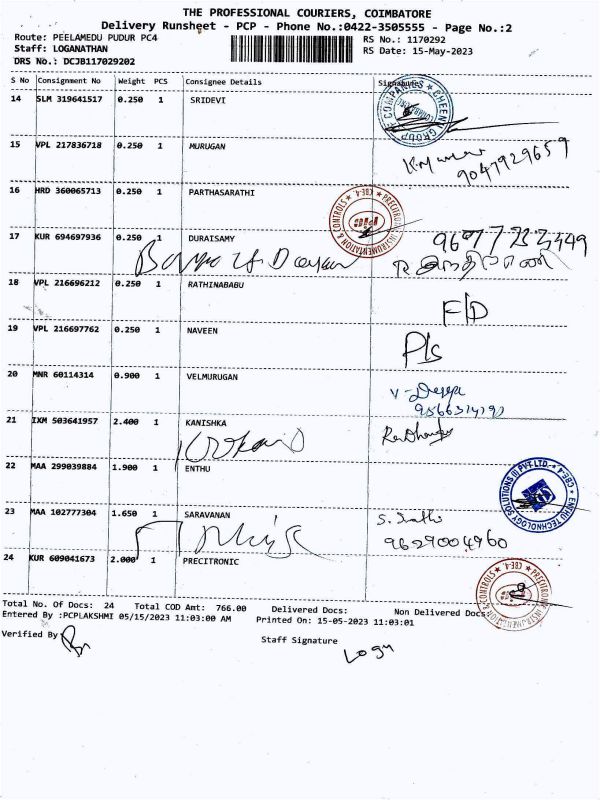 THE PROFESSIONAL COURIERS, COIMBATORE
Delivery Runsheet - PCP - Phone No.:0422-3505555 - Page No.:2
Route: PEELAMEDU PUDUR PC4 RS No.: 1170292
Staff: LOGANATHAN RS Date: 15-May-2023
DRS No.: DCJB117029202
S No Consignment No Weight PCS Consignee Details Signature
14 SLM 319641517 0.250 1 SRIDEVI
CHEENU GROUP COMPANIES
15 VPL 217836718 0.250 1 MURUGAN
9047929659
16 HRD 360065713 0.250 1 PARTHASARATHI
PRECITRONIC INSTRUMENTATION & CONTROLS CBE-4
17 KUR 694697936 0.250 1 DURAISAMY
18 VPL 216696212 0.250 1 RATHINABABU
F/D
19 VPL 216697762 0.250 1 NAVEEN
P/s
20 MNR 60114314 0.900 1 VELMURUGAN
21 IXM 503641957 2.400 1 KANISHKA
22 MAA 299039884 1.900 1 ENTHU
ENTHU TECHNOLOGY SOLUTIONS (I) PVT.LTD. CBE-4
23 MAA 102777304 1.650 1 SARAVANAN
9629004960
24 KUR 609041673 2.000 1 PRECITRONIC
PRECITRONIC INSTRUMENTATION & CONTROLS CBE-4
Total No. Of Docs: 24 Total COD Amt: 766.00 Delivered Docs: Non Delivered Docs:
Entered By :PCPLAKSHMI 05/15/2023 11:03:00 AM Printed On: 15-05-2023 11:03:01
Verified By Staff Signature
Logu